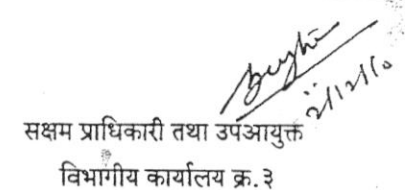 सक्षम प्राधिकारी तथा उपआयुक्त
विभागीय कार्यालय क्र.३